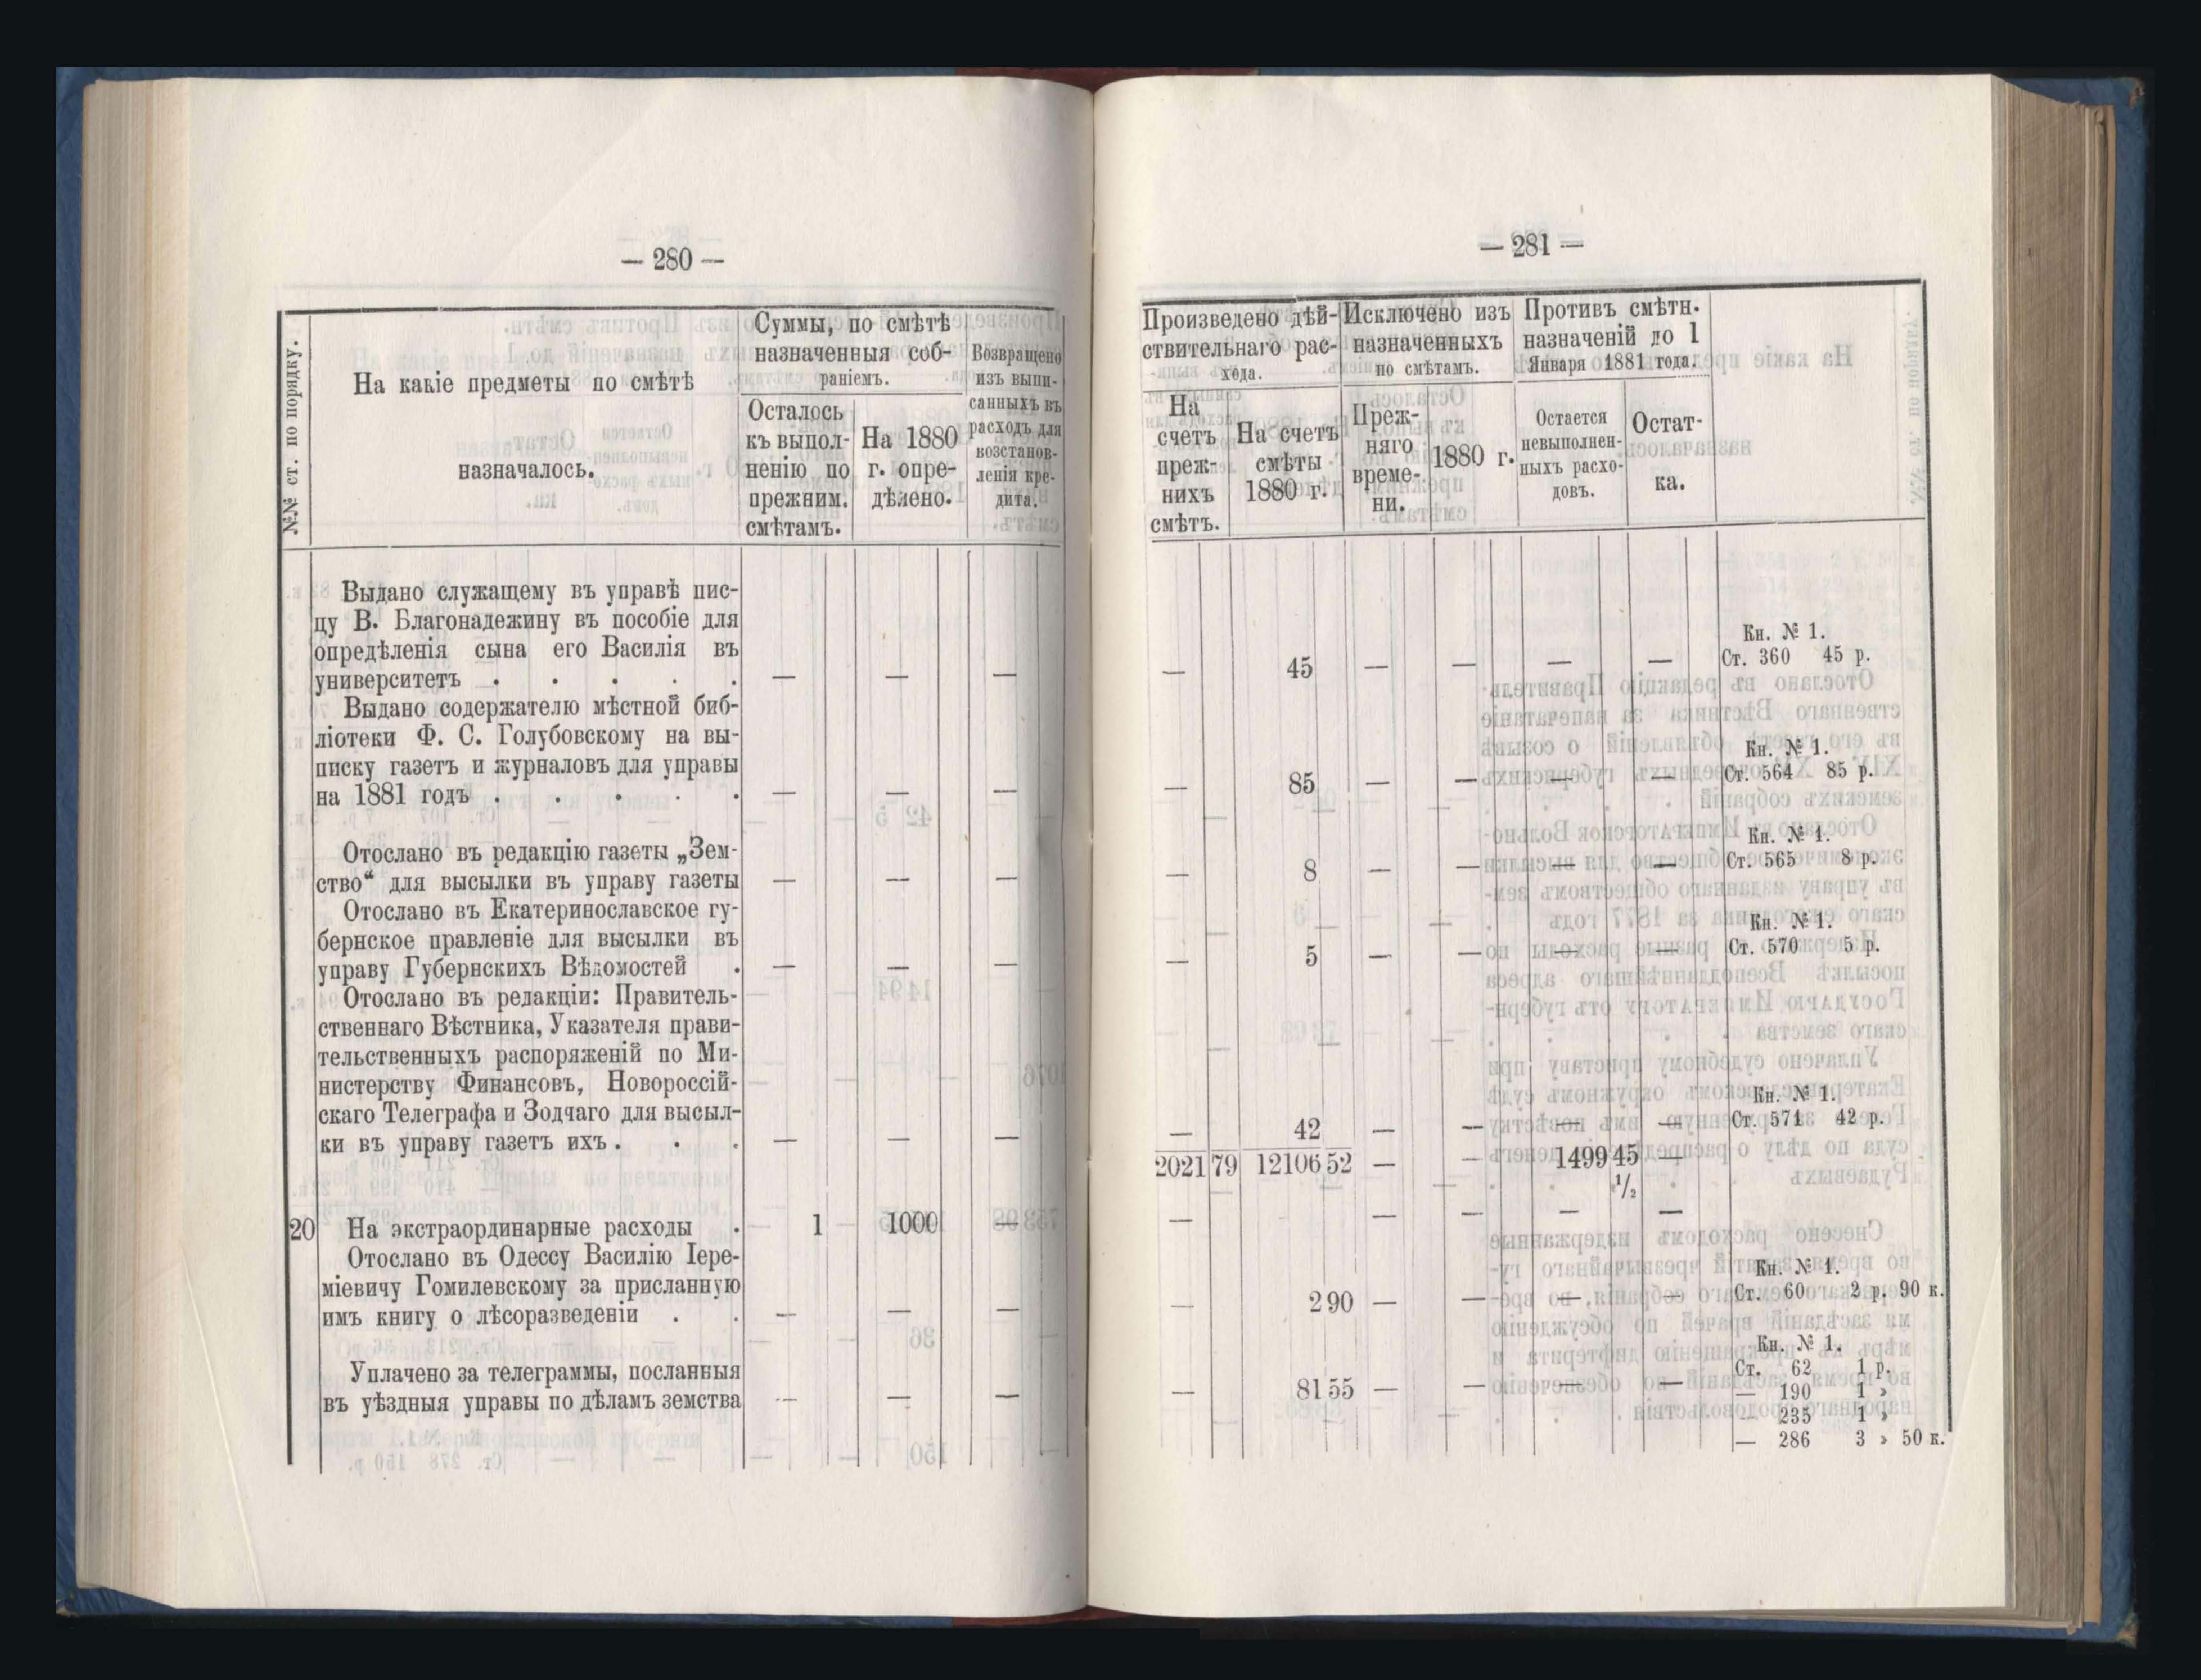 — 280 —
№№ ст. по порядку.
На какіе предметы по смѣтѣ
назначалось.
Суммы, по смѣтѣ
назначенныя соб-
раніемъ.
Осталось
къ выпол-
ненію по
прежним.
смѣтамъ.
На 1880
г. опре-
дѣлено.
Возвращено
изъ выпи-
санныхъ въ
расходъ для
возстанов-
ленія кре-
дита.
Выдано служащему въ управѣ пис-
цу В. Благонадежину въ пособіе для
опредѣленія сына его Василія въ
университетъ . . . . . — — —
Выдано содержателю мѣстной биб-
ліотеки Ф. С. Голубовскому на вы-
писку газетъ и журналовъ для управы
на 1881 годъ . . . . . — — —
Отослано въ редакцію газеты „Зем-
ство“ для высылки въ управу газеты — — —
Отослано въ Екатеринославское гу-
бернское правленіе для высылки въ
управу Губернскихъ Вѣдомостей . — — —
Отослано въ редакціи: Правитель-
ственнаго Вѣстника, Указателя прави-
тельственныхъ распоряженій по Ми-
нистерству Финансовъ, Новороссій-
скаго Телеграфа и Зодчаго для высыл-
ки въ управу газетъ ихъ . . . — — —
20 На экстраординарные расходы . 1 1000 —
Отослано въ Одессу Василію Іере-
міевичу Гомилевскому за присланную
имъ книгу о лѣсоразведеніи . . — — —
Уплачено за телеграммы, посланныя
въ уѣздныя управы по дѣламъ земства — — —
— 281 —
Произведено дѣй-
ствительнаго рас-
хода.
Исключено изъ
назначенныхъ
по смѣтамъ.
Противъ смѣтн.
назначеній до 1
Января 1881 года.
На
счетъ
преж-
нихъ
смѣтъ.
На счетъ
смѣты
1880 г.
Преж-
няго
време-
ни.
1880 г.
Остается
невыполнен-
ныхъ расхо-
довъ.
Остат-
ка.
Кн. № 1.
— 45 — — — — Ст. 360 45 р.
Кн. № 1.
— 85 — — — — Ст. 564 85 р.
Кн. № 1.
— 8 — — — — Ст. 565 8 р.
Кн. № 1.
— 5 — — — — Ст. 570 5 р.
Кн. № 1.
— 42 — — — — Ст. 571 42 р.
2021 79 12106 52 — — 1499 45 —
1/2
— — — — —
Кн. № 1.
— 2 90 — — — — Ст. 60 2 р. 90 к.
Кн. № 1.
Ст. 62 1 р.
— 81 55 — — — — — 190 1 »
— 235 1 »
— 286 3 » 50 к.